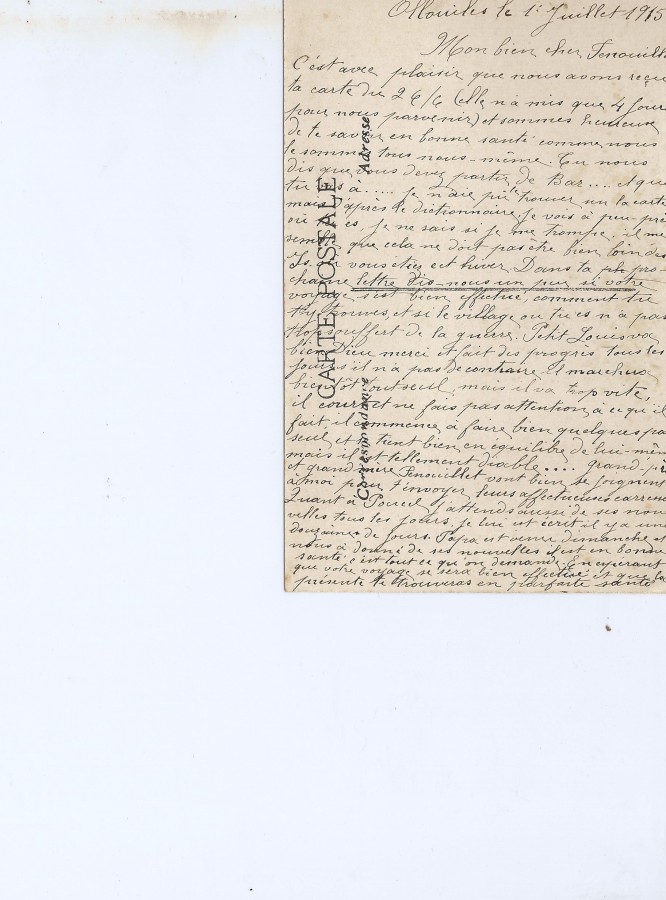 le 1er Juillet 1915
Mon bien cher Fenouill
C'est avec plaisir que nous avons reçu
ta carte du 26/6 (elle n'a mis que 4 jour
pour nous parvenir) et sommes heureux
de te savoir en bonne santé comme nous
le sommes tous nous-même. Tu nous
dis que vous devez partir de Bar.... et que
tu es à ..... Je n'aie pu le trouver sur la carte
mais d'après le dictionnaire je vois à peu près
où tu es, je ne sais si je me trompe, il me
semble que cela ne doit pas être bien loin des
Is. où vous étiez cet hiver. Dans ta pro-
chaine lettre dis-nous un peu si votre
voyage s'est bien effectué, comment tu
t'y trouves, et si le village ou tu es n'a pas
trop souffert de la guerre. Petit Louis va
bien Dieu merci et fait des progrès tous les
jours il n'a pas de contraire il marchera
bientôt tout seul, mais il va trop vite,
il court et ne fais pas attention à ce qu'il
fait, il commence à faire bien quelques pa
seul et se tient bien en équilibre de lui-mêm
mais il est tellement diable .... Grand-pèr
et grand'mère Fenouillet vont bien se joignent
à moi pour t'envoyer leurs affectueuses
Quant à j'attends aussi de ses nou
velles tous les jours, je lui est écrit il y a un
douzaine de jours. Papa est venu dimanche et
nous à donné de ses nouvelles il est en bonne
santé c'est tout ce qu'on demande. En esperant
que votre voyage se sera bien effectué et que la
présente te trouveras en parfaite santé
CARTE POSTALE
Correspondance
Adresse